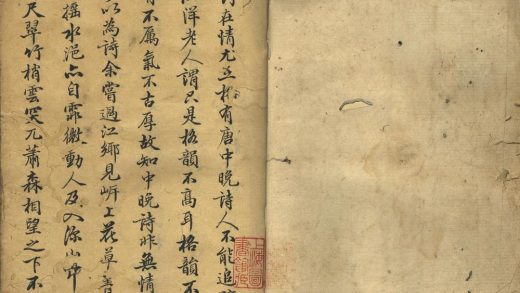 在情尤有唐中晚詩人不能追
洋老人謂只是格韻不高耳格韻不
有不厲氣不古厚故知中晚詩非無情
以為詩余嘗過江鄉見岍上花草
搖水浥亦自霏微動人及入深山
尺翠竹梢雲突兀蕭森相望之下不
上海圖
書館藏